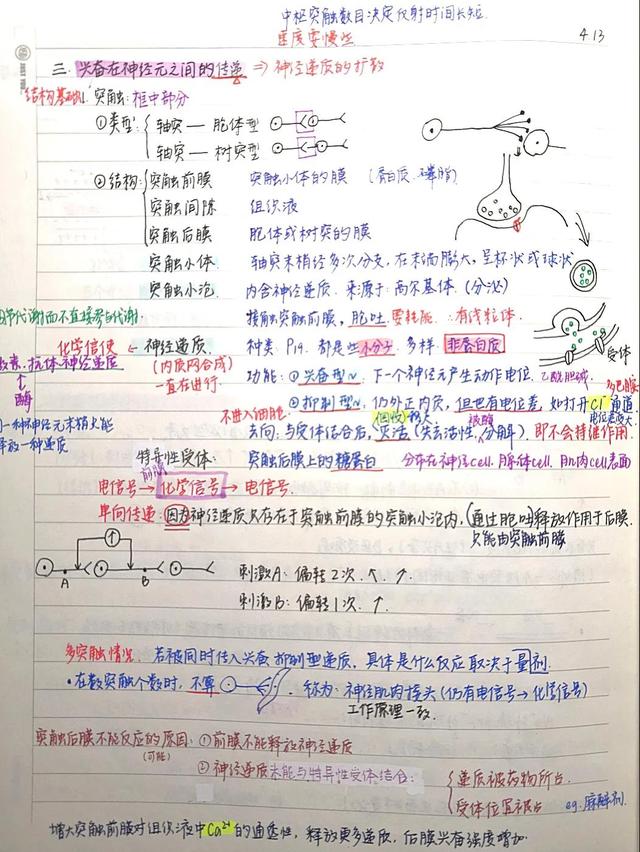 中枢突触数目决定反射时间长短.
速度变慢些
4.13
三.兴奋在神经元之间的传递 ⇒ 神经递质的扩散
结构基础1.突触:框中部分
①类型:{轴突—胞体型
轴突—树突型
②结构:{突触前膜 突触小体的膜 (蛋白质、磷脂)
突触间隙 组织液
突触后膜 胞体或树突的膜
突触小体. 轴突末梢经多次分支,在末尾膨大,呈杯状或球状
突触小泡. 内含神经递质. 来源于:高尔基体.(分泌)
节代谢而不直接参与代谢. 接触突触前膜,胞吐 要耗能 ∴有线粒体.
化学信使 ← 神经递质. 种类 P19. 都是些小分子 多样 非蛋白质 受体
激素.抗体.神经递质 (内质网合成) 功能:①兴奋型~.下一个神经元产生动作电位.乙酰胆碱.
↑ 一直在进行.
酶 ②抑制型~.仍外正内负,但也有电位差,如打开Cl⁻通道
电位差变大.
不进入细胞. (回收)
一种神经元末梢只能 去向:与受体结合后,灭活(失去活性,分解).即不会持续作用.
释放一种递质
特异性受体 突触后膜上的糖蛋白 分布在神经cell.腺体cell.肌肉cell表面
前膜
电信号→化学信号→电信号.
单向传递:因为神经递质只存在于突触前膜的突触小泡内,(通过胞吐)释放作用于后膜.
只能由突触前膜
A B
刺激A:偏转2次.↖.↗.
刺激B:偏转1次.↗.
多突触情况.若被同时传入兴奋.抑制型递质,具体是什么反应取决于量剂.
·在数突触个数时,不算 .称为:神经肌肉接头(仍有电信号→化学信号)
工作原理一致.
突触后膜不能反应的原因:①前膜不能释放神经递质
(可能)
②神经递质未能与特异性受体结合: {递质被药物所占.
受体位置被占 eg.麻醉剂.
增大突触前膜对组织液中Ca²⁺的通透性,释放更多递质,后膜兴奋强度增加.